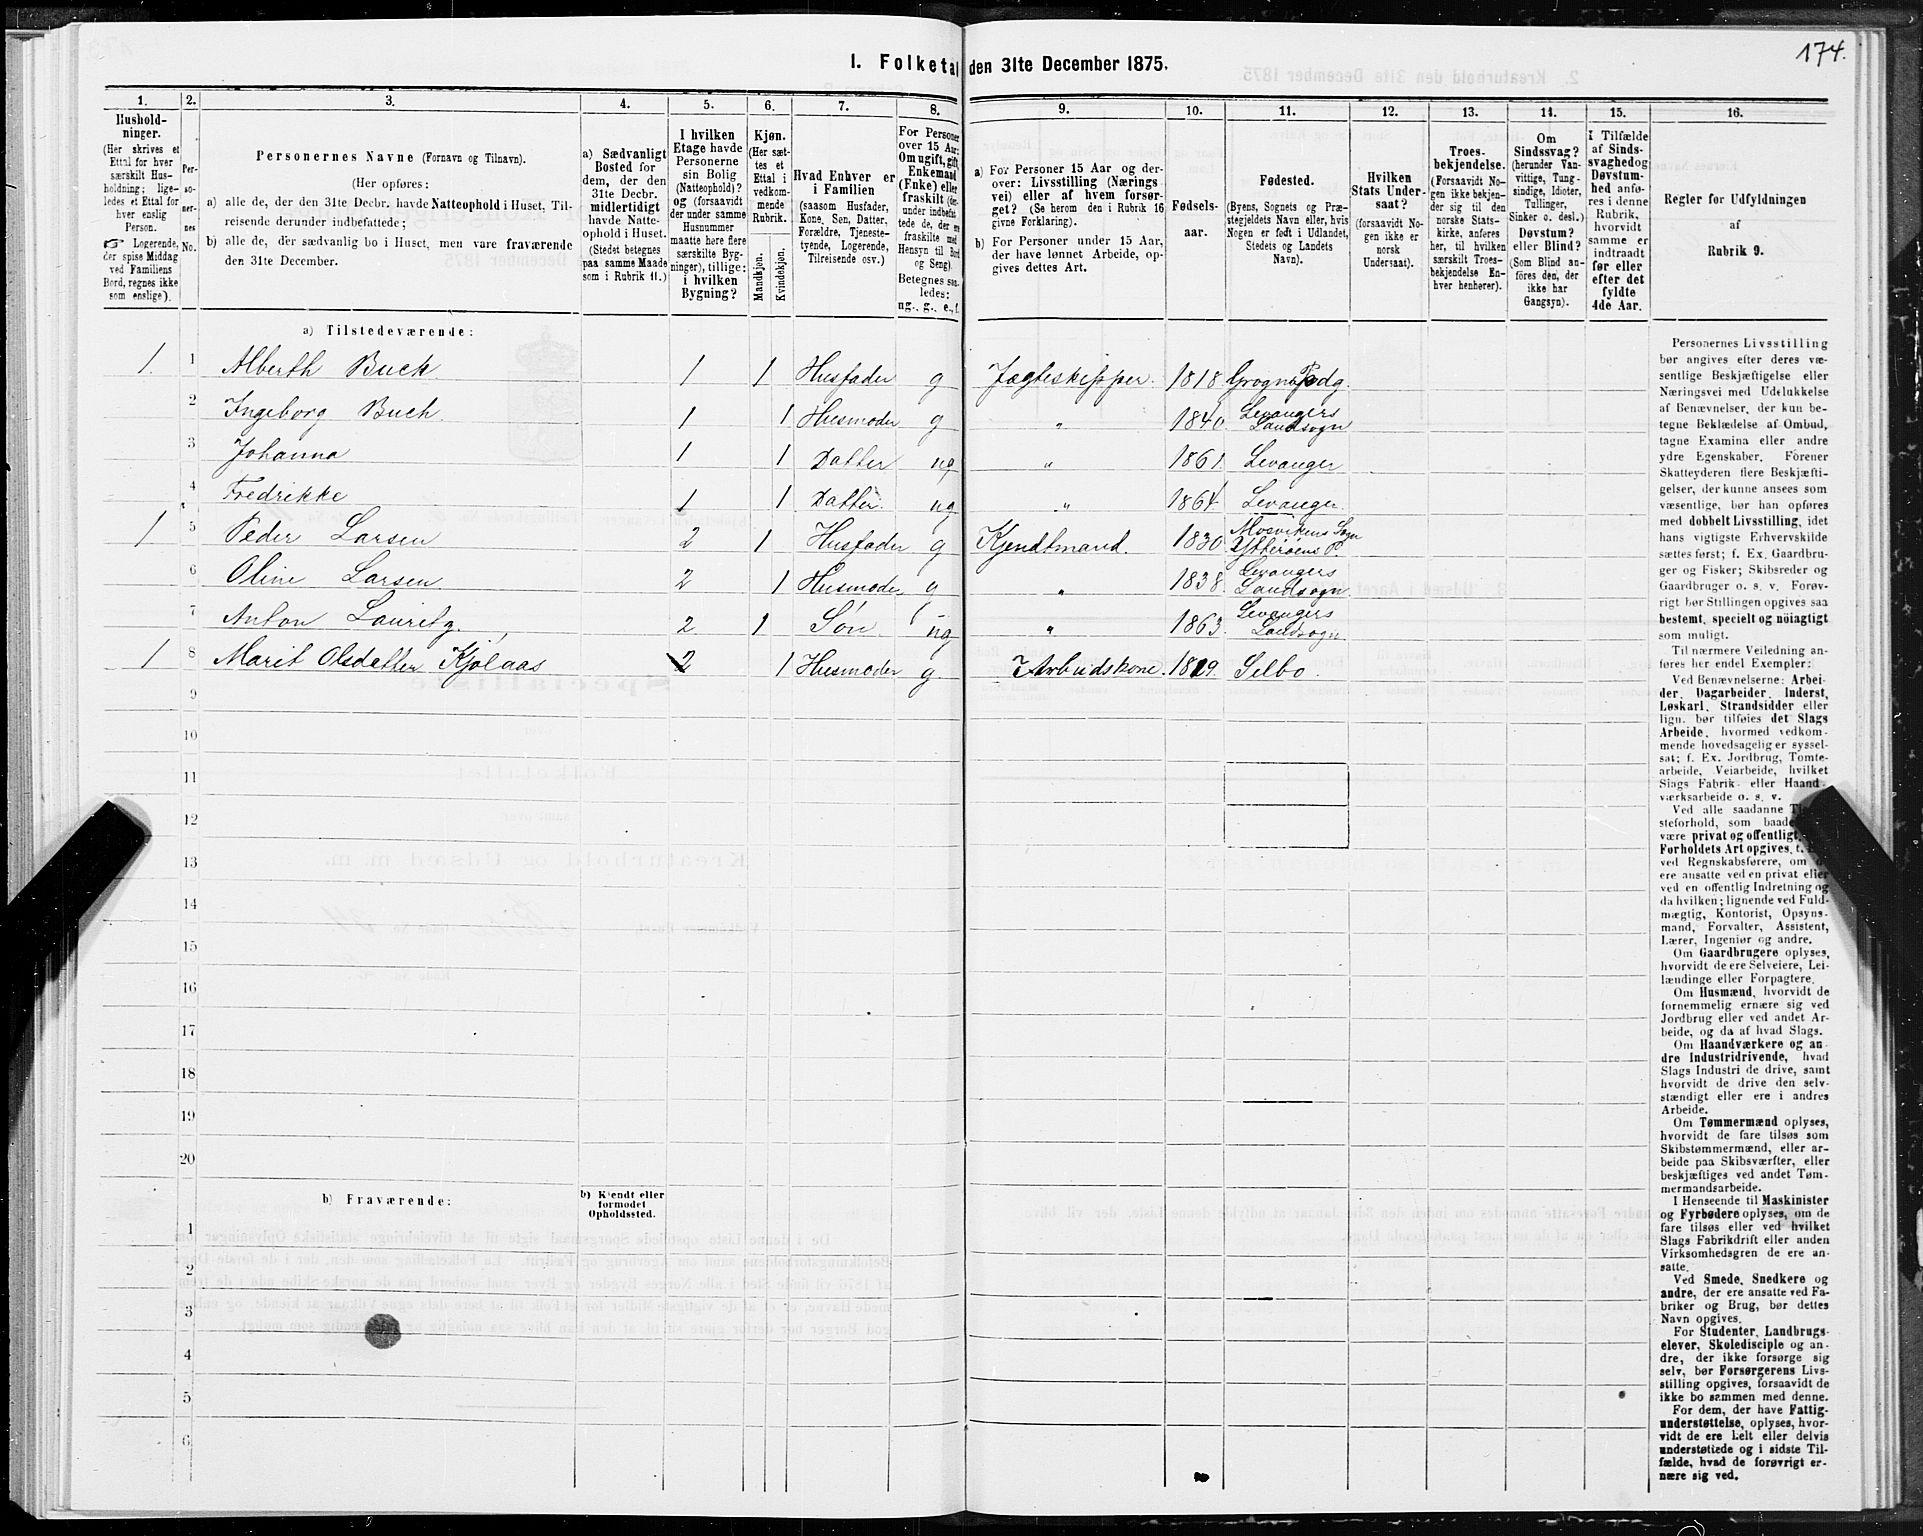 174.
I. Folketal den 31te December 1875.
1.
2.
3.
4.
5.
6.
7.
8.
9.
10.
11.
12.
13.
14.
15.
16.
Hushold-
ninger.
(Her skrives et
Ettal for hver
særskilt Hus-
holdning; lige-
ledes et Ettal for
hver enslig
Person.
☞ Logerende,
der spise Middag
ved Familiens
Bord, regnes ikke
som enslige).
Per-
so-
ner-
nes
No.
Personernes Navne (Fornavn og Tilnavn).
(Her opføres:
a) alle de, der den 31te Decbr. havde Natteophold i Huset, Til-
reisende derunder indbefattede;
b) alle de, der sædvanlig bo i Huset, men vare fraværende
den 31te December.
a) Sædvanligt
Bosted for
dem, der den
31te Decbr.
midlertidigt
havde Natte-
ophold i Huset.
(Stedet betegnes
paa samme Maade
som i Rubrik 11.)
I hvilken
Etage havde
Personerne
sin Bolig
(Natteophold)?
og (forsaavidt
der under samme
Husnummer
maatte høre flere
særskilte Byg-
ninger), tillige:
i hvilken
Bygning?
Kjøn.
(Her sæt-
tes et
Ettal i
vedkom-
mende
Rubrik.
Mandkjøn.
Kvindekjøn.
Hvad Enhver er
i Familien
(saasom Husfader,
Kone, Søn, Datter,
Forældre, Tjeneste-
tyende, Logerende,
Tilreisende osv.)
For Personer
over 15 Aar:
Om ugift, gift,
Enkemand
(Enke) eller
fraskilt (der-
under indbefat-
tede de, der ere
fraskilte med
Hensyn til Bord
og Seng).
Betegnes saa-
ledes:
ug., g., e., f.
a) For Personer 15 Aar og der-
over: Livsstilling (Nærings-
vei) eller af hvem forsør-
get? (Se herom den i Rubrik 16
givne Forklaring).
b) For Personer under 15 Aar,
der have lønnet Arbeide, op-
gives dettes Art.
Fødsels-
aar.
Fødested.
(Byens, Sognets og Præ-
stegjeldets Navn eller, hvis
Nogen er født i Udlandet,
Stedets og Landets
Navn).
Hvilken
Stats Under-
saat?
(forsaavidt No-
gen ikke er
norsk
Undersaat).
Troes-
bekjendelse.
(Forsaavidt No-
gen ikke bekjen-
der sig til den
norske Stats-
kirke, anføres
her, til hvilken
særskilt Troes-
bekjendelse En-
hver henhører).
Om
Sindssvag?
(herunder Van-
vittige, Tung-
sindige, Idioter,
Tullinger,
Sinker o. desl.)
Døvstum?
eller Blind?
(Som Blind an-
føres den, der
ikke har
Gangsyn).
I Tilfælde
af Sinds-
svaghed og
Døvstum-
hed anfø-
res i denne
Rubrik,
hvorvidt
samme er
indtraadt
før eller
efter det
fyldte
4de Aar.
Regler for Udfyldningen
af
Rubrik 9.
a) Tilstedeværende:
1 1 Alberth Buck 1 1 Husfader g Jagteskipper. 1818
2 Ingeborg Buch 1 1 Husmoder g " 1840. Levangers Landsogn
3 Johanna 1 1 Datter ug " 1861. Levanger
4 Fredrikke 1 1 Datter. ug " 1864 Levanger.
1 5 Peder Larsen 2 1 Husfader g Kjendtmand. 1830. Mosvikens Sogn Ytterøens P.
6 Oline Larsen 2 1 Husmoder g " 1838. Levangers Landsogn.
7 Anton Lauritz. 2 1 Søn ug " 1863. Levangers Landsogn
1 8 Marit Olsdatter Kjølaas 2 1 Husmoder g. Arbeidskone. Selbo.
9
10
11
12
13
14
15
16
17
18
19
20
b) Fraværende:
b) Kjendt eller
formodet
Opholdssted.
1
2
3
4
5
6
Personernes Livsstilling
bør angives efter deres væ-
sentlige Beskjæftigelse eller
Næringsvei med Udelukkelse
af Benævnelser, der kun be-
tegne Beklædelse af Ombud,
tagne Examina eller andre
ydre Egenskaber. Forener
Skatteyderen flere Beskjæfti-
gelser, der kunne ansees som
væsentlige, bør han opføres
med dobbelt Livsstilling, idet
hans vigtigste Erhvervskilde
sættes først; f. Ex. Gaardbru-
ger og Fisker; Skibsreder og
Gaardbruger o. s. v. Forøv-
rigt bør Stillingen opgives saa
bestemt, specielt og nöiagtigt
som muligt.
Til nærmere Veiledning an-
føres her endel Exempler:
Ved Benævnelserne: Arbei-
der, Dagarbeider, Inderst,
Løskarl, Strandsidder eller
lign. bør tilføies det Slags
Arbeide, hvormed vedkom-
mende hovedsagelig er syssel-
sat; f. Ex. Jordbrug, Tomte-
arbeide, Veiarbeide, hvilket
Slags Fabrik- eller Haand-
værksarbeide o. s. v.
Ved alle saadanne
steforhold, som baade
være privat og offentligt,
Forholdets Art opgives, t.
ved Regnskabsførere, om
ere ansatte ved en privat eller
ved en offentlig Indretning og
da hvilken; lignende ved Fuld-
mægtig, Kontorist, Opsyns-
mand, Forvalter, Assistent,
Lærer, Ingeniør og andre.
Om Gaardbrugere oplyses,
hvorvidt de ere Selveiere, Lei-
lændinge eller Forpagtere.
Om Husmænd, hvorvidt de
fornemmelig ernære sig ved
Jordbrug eller ved andet Ar-
beide, og da af hvad Slags.
Om Haandværkere og an-
dre Industridrivende, hvad
Slags Industri de drive, samt
hvorvidt de drive den selv-
stændigt eller ere i andres
Arbeide.
Om Tømmermænd oplyses,
hvorvidt de fare tilsøs som
Skibstømmermænd, eller ar-
beide paa Skibsværfter, eller
beskjæftiges ved andet Tøm-
mermandsarbeide.
I Henseende til Maskinister
og Fyrbødere oplyses, om de
fare tilsøs eller ved hvilket
Slags Fabrikdrift eller anden
Virksomhedsgren de ere an-
satte.
Ved Smede, Snedkere og
andre, der ere ansatte ved Fa-
briker og Brug, bør dettes
Navn opgives.
For Studenter, Landbrugs-
elever, Skoledisciple og an-
dre, der ikke forsørge sig
selv, bør Forsørgerens Livs-
stilling opgives, forsaavidt de
ikke bo sammen med denne.
For dem, der have Fattig-
understøttelse, oplyses, hvor-
vidt de ere helt eller delvis
understøttede og i sidste Til-
fælde, hvad de forøvrigt er-
nære sig ved.